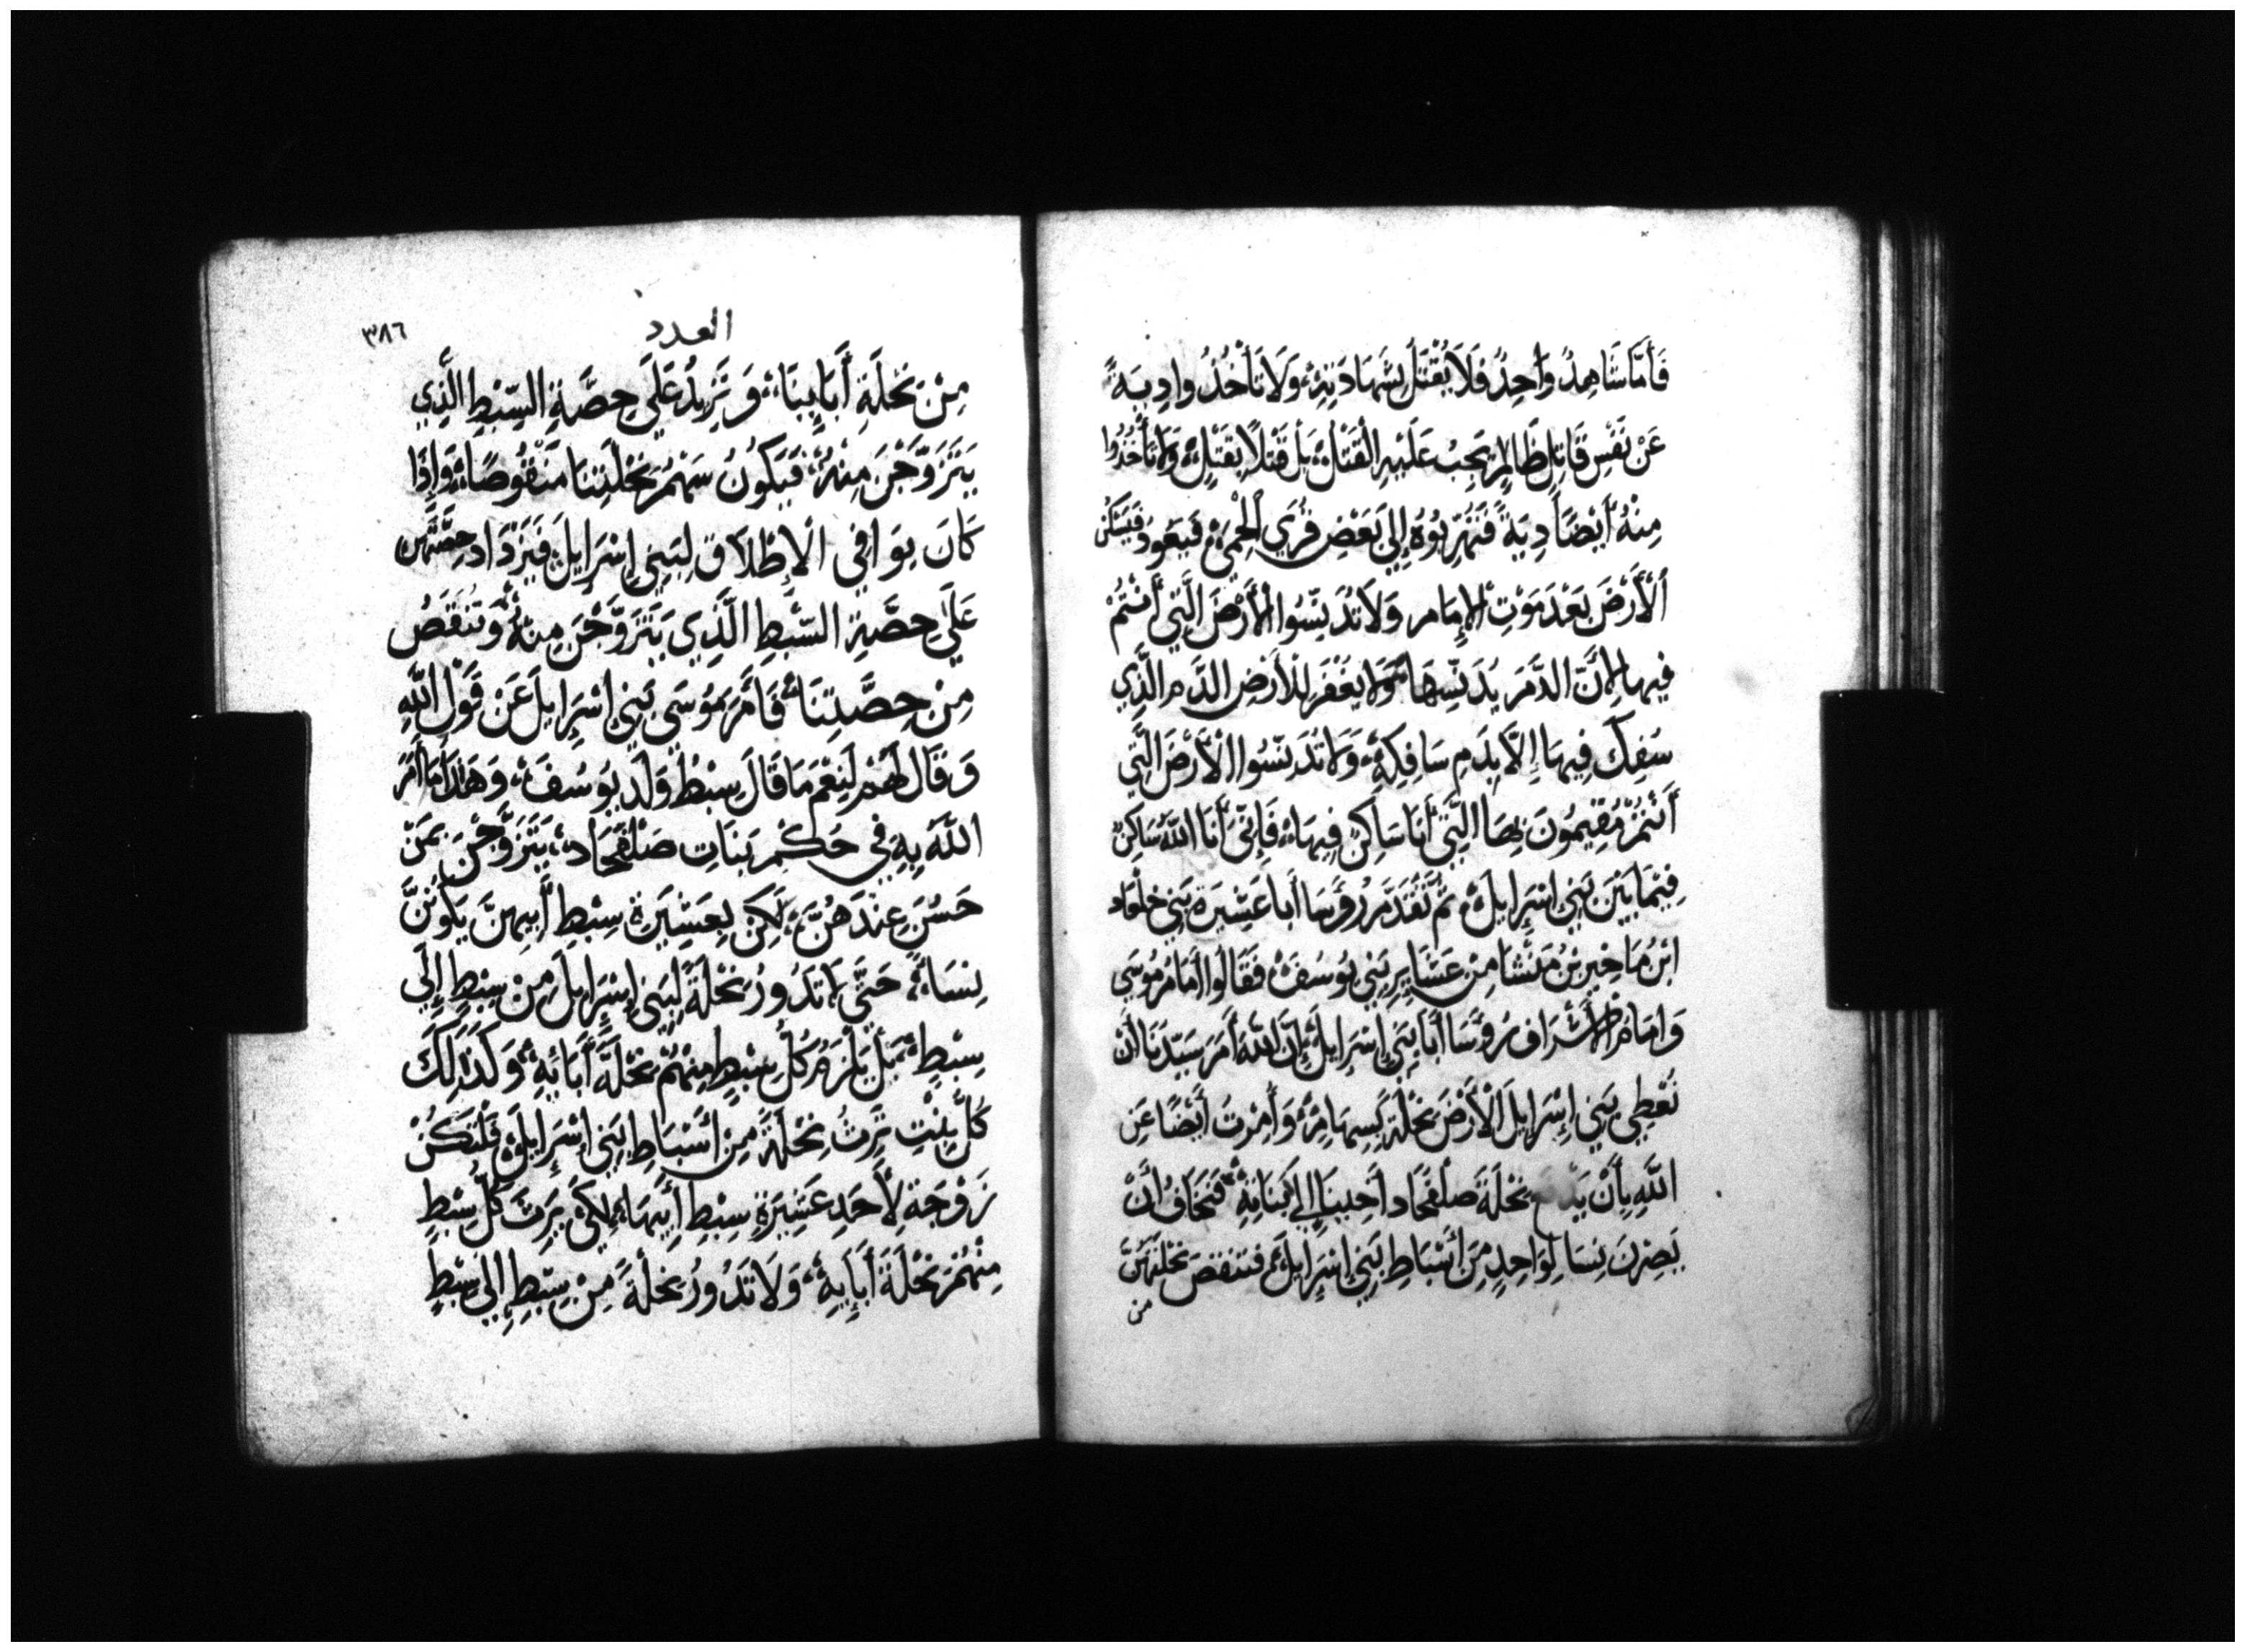 فَأَمَّا شَاهِدٌ وَاحِدٌ فَلَا يُقْتَلُ بِشَهَادَتِهِ، وَلَا تَأْخُذُوا دِيَةً
عَنْ نَفْسِ قَاتِلٍ ظَالِمٍ تَجِبُ عَلَيْهِ الْقَتْلُ، بَلْ قَتْلًا يُقْتَلُ، وَلَا تَأْخُذُوا
مِنْهُ أَيْضًا دِيَةً فَتُهَرِّبُوهُ إِلَى بَعْضِ قُرَى الْحِمَى فَيَعُودَ فَيَسْكُنَ
الْأَرْضَ بَعْدَ مَوْتِ الْإِمَامِ وَلَا تُدَنِّسُوا الْأَرْضَ الَّتِي أَنْتُمْ
فِيهَا لِأَنَّ الدَّمَ يُدَنِّسُهَا، وَلَا يُغْفَرُ لِلْأَرْضِ الدَّمِ الَّذِي
سُفِكَ فِيهَا إِلَّا بِدَمِ سَافِكِهِ، وَلَا تُدَنِّسُوا الْأَرْضَ الَّتِي
أَنْتُمْ مُقِيمُونَ بِهَا الَّتِي أَنَا سَاكِنٌ فِيهَا، فَإِنِّي أَنَا اللَّهُ سَاكِنٌ
فِيمَا بَيْنَ بَنِي إِسْرَايِلَ، ثُمَّ تَقَدَّمَ رُؤَسَا أَبَا عَشِيرَةِ بَنِي جِلْعَاد
ابْنُ مَاخِيرِ بْنُ مَنَشَّا مِنْ عَشَايِرِ بَنِي يُوسُفَ فَقَالُوا أَمَامَ مُوسَى
وَامَامَ الْأَشْرَافِ رُؤَسَا أَبَا بَنِي إِسْرَايِلَ، إِنَّ اللَّهَ أَمَرَ سَيِّدَنَا أَنْ
نُعْطِي بَنِي إِسْرَايِلَ الْأَرْضَ نِحْلَةً بِسِهَامٍ، وَأُمِرْتَ أَيْضًا عَنِ
اللَّهِ بِأَنْ نِحْلَةَ صَلْفَحَاد أَخِينَا إِلَى بَنَاتِهِ، فَنَخَافُ أَنْ
يَصِرْنَ نِسَا لِوَاحِدٍ مِنْ أَسْبَاطِ بَنِي إِسْرَايِلَ، فَتَنْقُصَ نِحْلَتَهُنَّ
من
العدد
٣٨٦
مِنْ نِحْلَةِ أَبَايِنَا، وَتَزِيدُ عَلَى حِصَّةِ السِّبْطِ الَّذِي
يَتَزَوَّجْنَ مِنْهُ، فَيَكُونُ سَهْمُ نِحْلَتِنَا مَنْقُوصًا، وَإِذَا
كَانَ يُوَافِي الْإِطْلَاقَ لِبَنِي إِسْرَايِلَ، فَيَزْدَادُ حِصَّتُهُنَّ
عَلَى حِصَّةِ السِّبْطِ الَّذِي يَتَزَوَّجْنَ مِنْهُ وَتَنْقُصُ
مِنْ حِصَّتِنَا، فَأَمَرَ مُوسَى بَنِي إِسْرَايِلَ عَنْ قَوْلِ اللَّهِ
وَقَالَ لَهُمْ لَنِعْمَ مَا قَالَ سِبْطُ وَلَدِ يُوسُفَ، وَهَذَا مَا أَمَرَ
اللَّهُ بِهِ فِي حُكْمِ بَنَاتِ صَلْفَحَاد، يَتَزَوَّجْنَ بِمَنْ
حَسُنَ عِنْدَهُنَّ، لَكِنْ بِعَشِيرَةِ سِبْطِ أَبِيهِنَّ يَكُونَنَّ
نِسَاءً، حَتَّى لَا تَدُورُ نِحْلَةً لِبَنِي إِسْرَايِلَ مِنْ سِبْطٍ إِلَى
سِبْطٍ، بَلْ يَلْزَمُ كُلُّ سِبْطٍ مِنْهُمْ نِحْلَةَ أَبَائِهِ، وَكَذَلِكَ
كُلُّ بِنْتٍ تَرِثُ نِحْلَةً مِنْ أَسْبَاطِ بَنِي إِسْرَايِلَ، فَلْتَكُنْ
زَوْجَةً لِأَحَدِ عَشِيرَةِ سِبْطِ أَبِيهَا، لِكَيْ يَرِثَ كُلُّ سِبْطٍ
مِنْهُمْ نِحْلَةَ أَبَايِهِ، وَلَا تَدُورُ نِحْلَةً مِنْ سِبْطٍ إِلَى سِبْطٍ